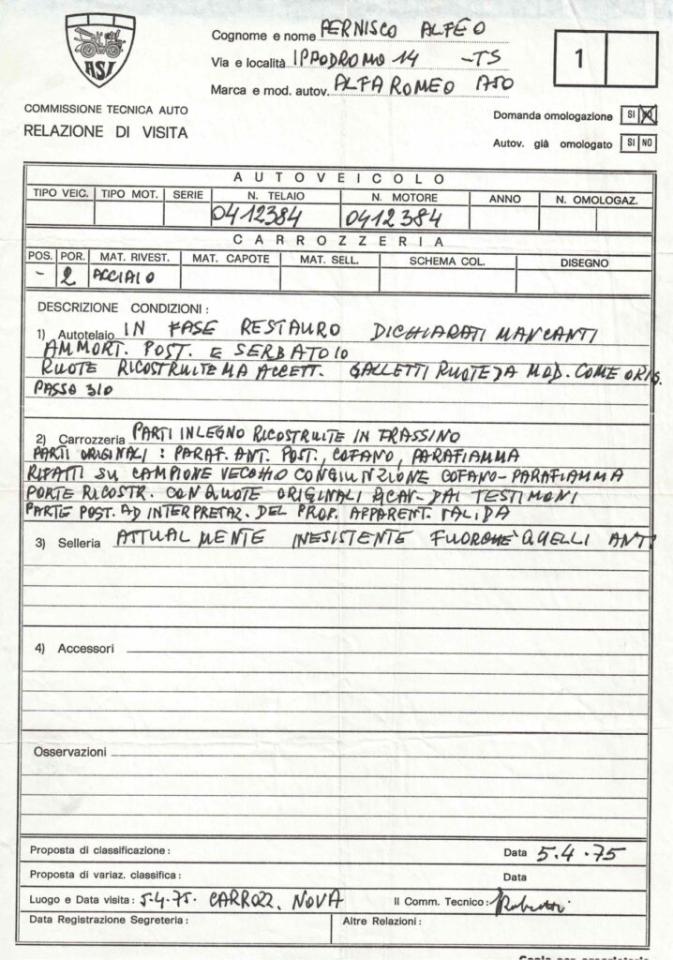 ASI
COMMISSIONE TECNICA AUTO
RELAZIONE DI VISITA
Cognome e nome PERNISCO ALFEO
Via e località IPPODROMO 14 -TS
Marca e mod. autov. ALFA ROMEO 1750
1
Domanda omologazione SI NO
Autov. già omologato SI NO
AUTOVEICOLO
TIPO VEIC. TIPO MOT. SERIE N. TELAIO N. MOTORE ANNO N. OMOLOGAZ.
0412384 0412384
CARROZZERIA
POS. POR. MAT. RIVEST. MAT. CAPOTE MAT. SELL. SCHEMA COL. DISEGNO
- 2 ACCIAIO
DESCRIZIONE CONDIZIONI:
1) Autotelaio IN FASE RESTAURO DICHIARATI MANCANTI
AMMORT. POST. E SERBATOIO
RUOTE RICOSTRUITE MA ACCETT. GALLETTI RUOTE DA MOD. COME ORIG.
PASSO 310
2) Carrozzeria PARTI IN LEGNO RICOSTRUITE IN FRASSINO
PARTI ORIGINALI: PARAF. ANT. POST., COFANO, PARAFIAMMA
RIFATTI SU CAMPIONE VECCHIO CONGIUNZIONE COFANO-PARAFIAMMA
PORTE RICOSTR. CON QUOTE ORIGINALI RICAV. DAI TESTIMONI
PARTE POST. AD INTERPRETAZ. DEL PROP. APPARENT. VALIDA
3) Selleria ATTUALMENTE INESISTENTE FUORCHE QUELLI ANT.
4) Accessori
Osservazioni
Proposta di classificazione: Data 5.4.75
Proposta di variaz. classifica: Data
Luogo e Data visita: 5.4.75. CARROZZ. NOVA Il Comm. Tecnico:
Data Registrazione Segreteria: Altre Relazioni: